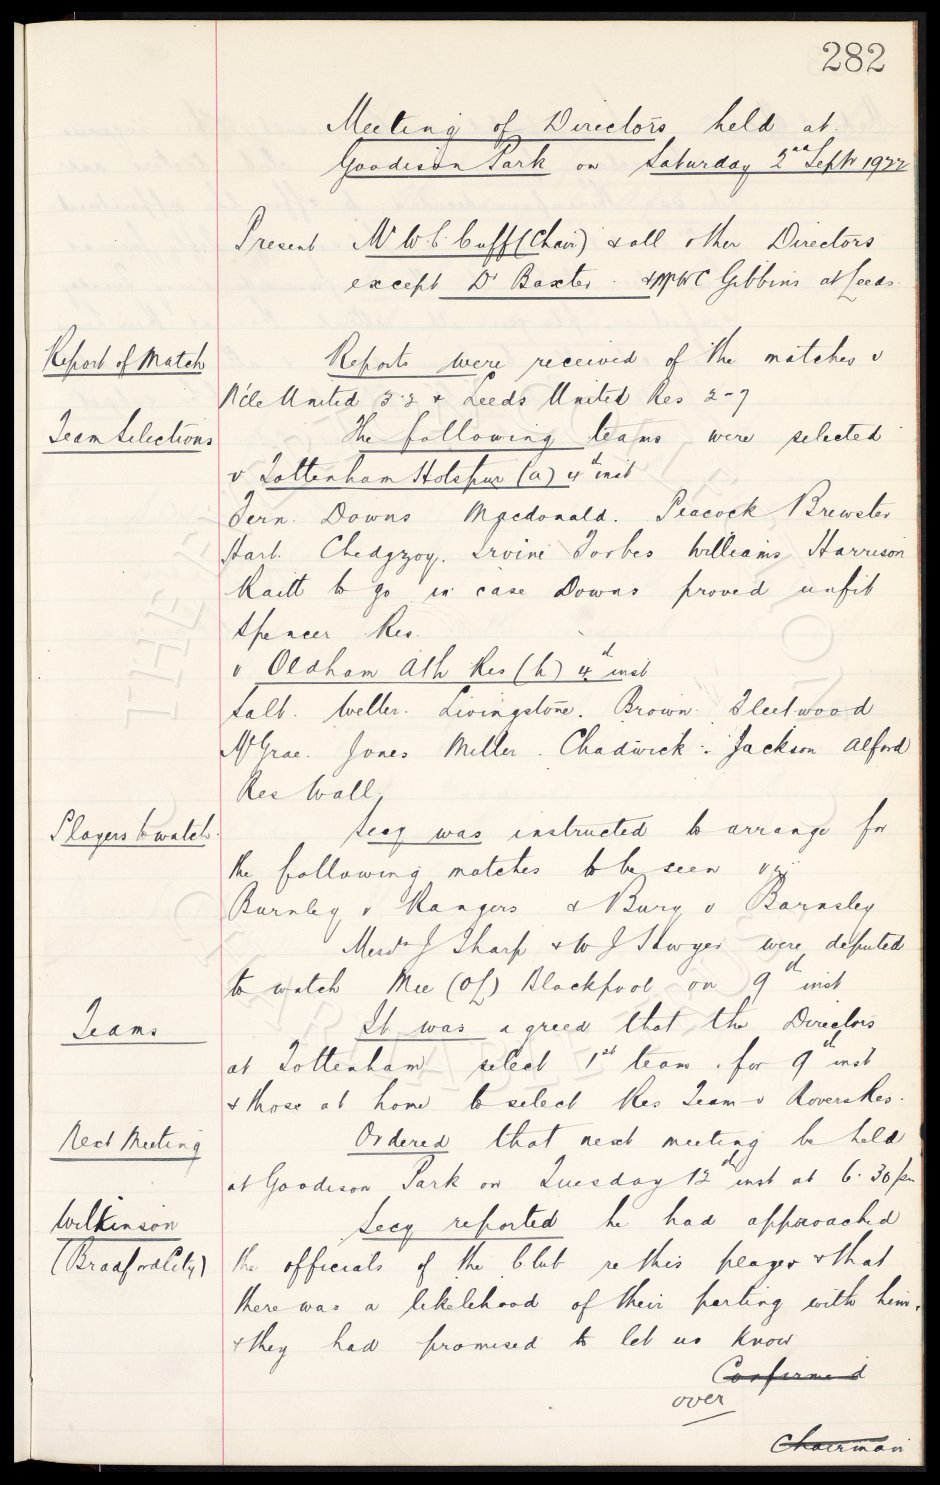 282
Meeting of Directors held at
Goodison Park on Saturday 2nd Septr 1922
Present Mr W.C. Cuff (Chair) & all other Directors
except Dr Baxter & Mr WC Gibbins at Leeds.
Report of Match
Reports were received of the matches v
N'cle United 3-2 & Leeds United Res 2-7
Team Selections
The following teams were selected
v Tottenham Hotspur (a) 4th inst
Fern. Downs Macdonald. Peacock Brewster
Hart. Chedgzoy. Irvine Forbes Williams Harrison
Raitt to go in case Downs proved unfit
Spencer Res.
v Oldham Ath Res (h) 4th inst
Salt. Weller. Livingstone. Brown. Fleetwood
McGrae. Jones Miller. Chadwick. Jackson Alford
Res Wall.
Players to watch.
Secy was instructed to arrange for
the following matches to be seen viz
Burnley v Rangers & Bury v Barnsley
Messrs J Sharp & W J Sawyer were deputed
to watch Mee (OL) Blackpool on 9th inst
Teams
It was agreed that the Directors
at Tottenham select 1st team for 9th inst
& those at home to select Res Team v Rovers Res.
Next Meeting
Ordered that next meeting be held
at Goodison Park on Tuesday 12th inst at 6.30 pm
Wilkinson
(Bradford City)
Secy reported he had approached
the officials of the Club re this player & that
there was a likelihood of their parting with him,
& they had promised to let us know
Confirmed
over
Chairman